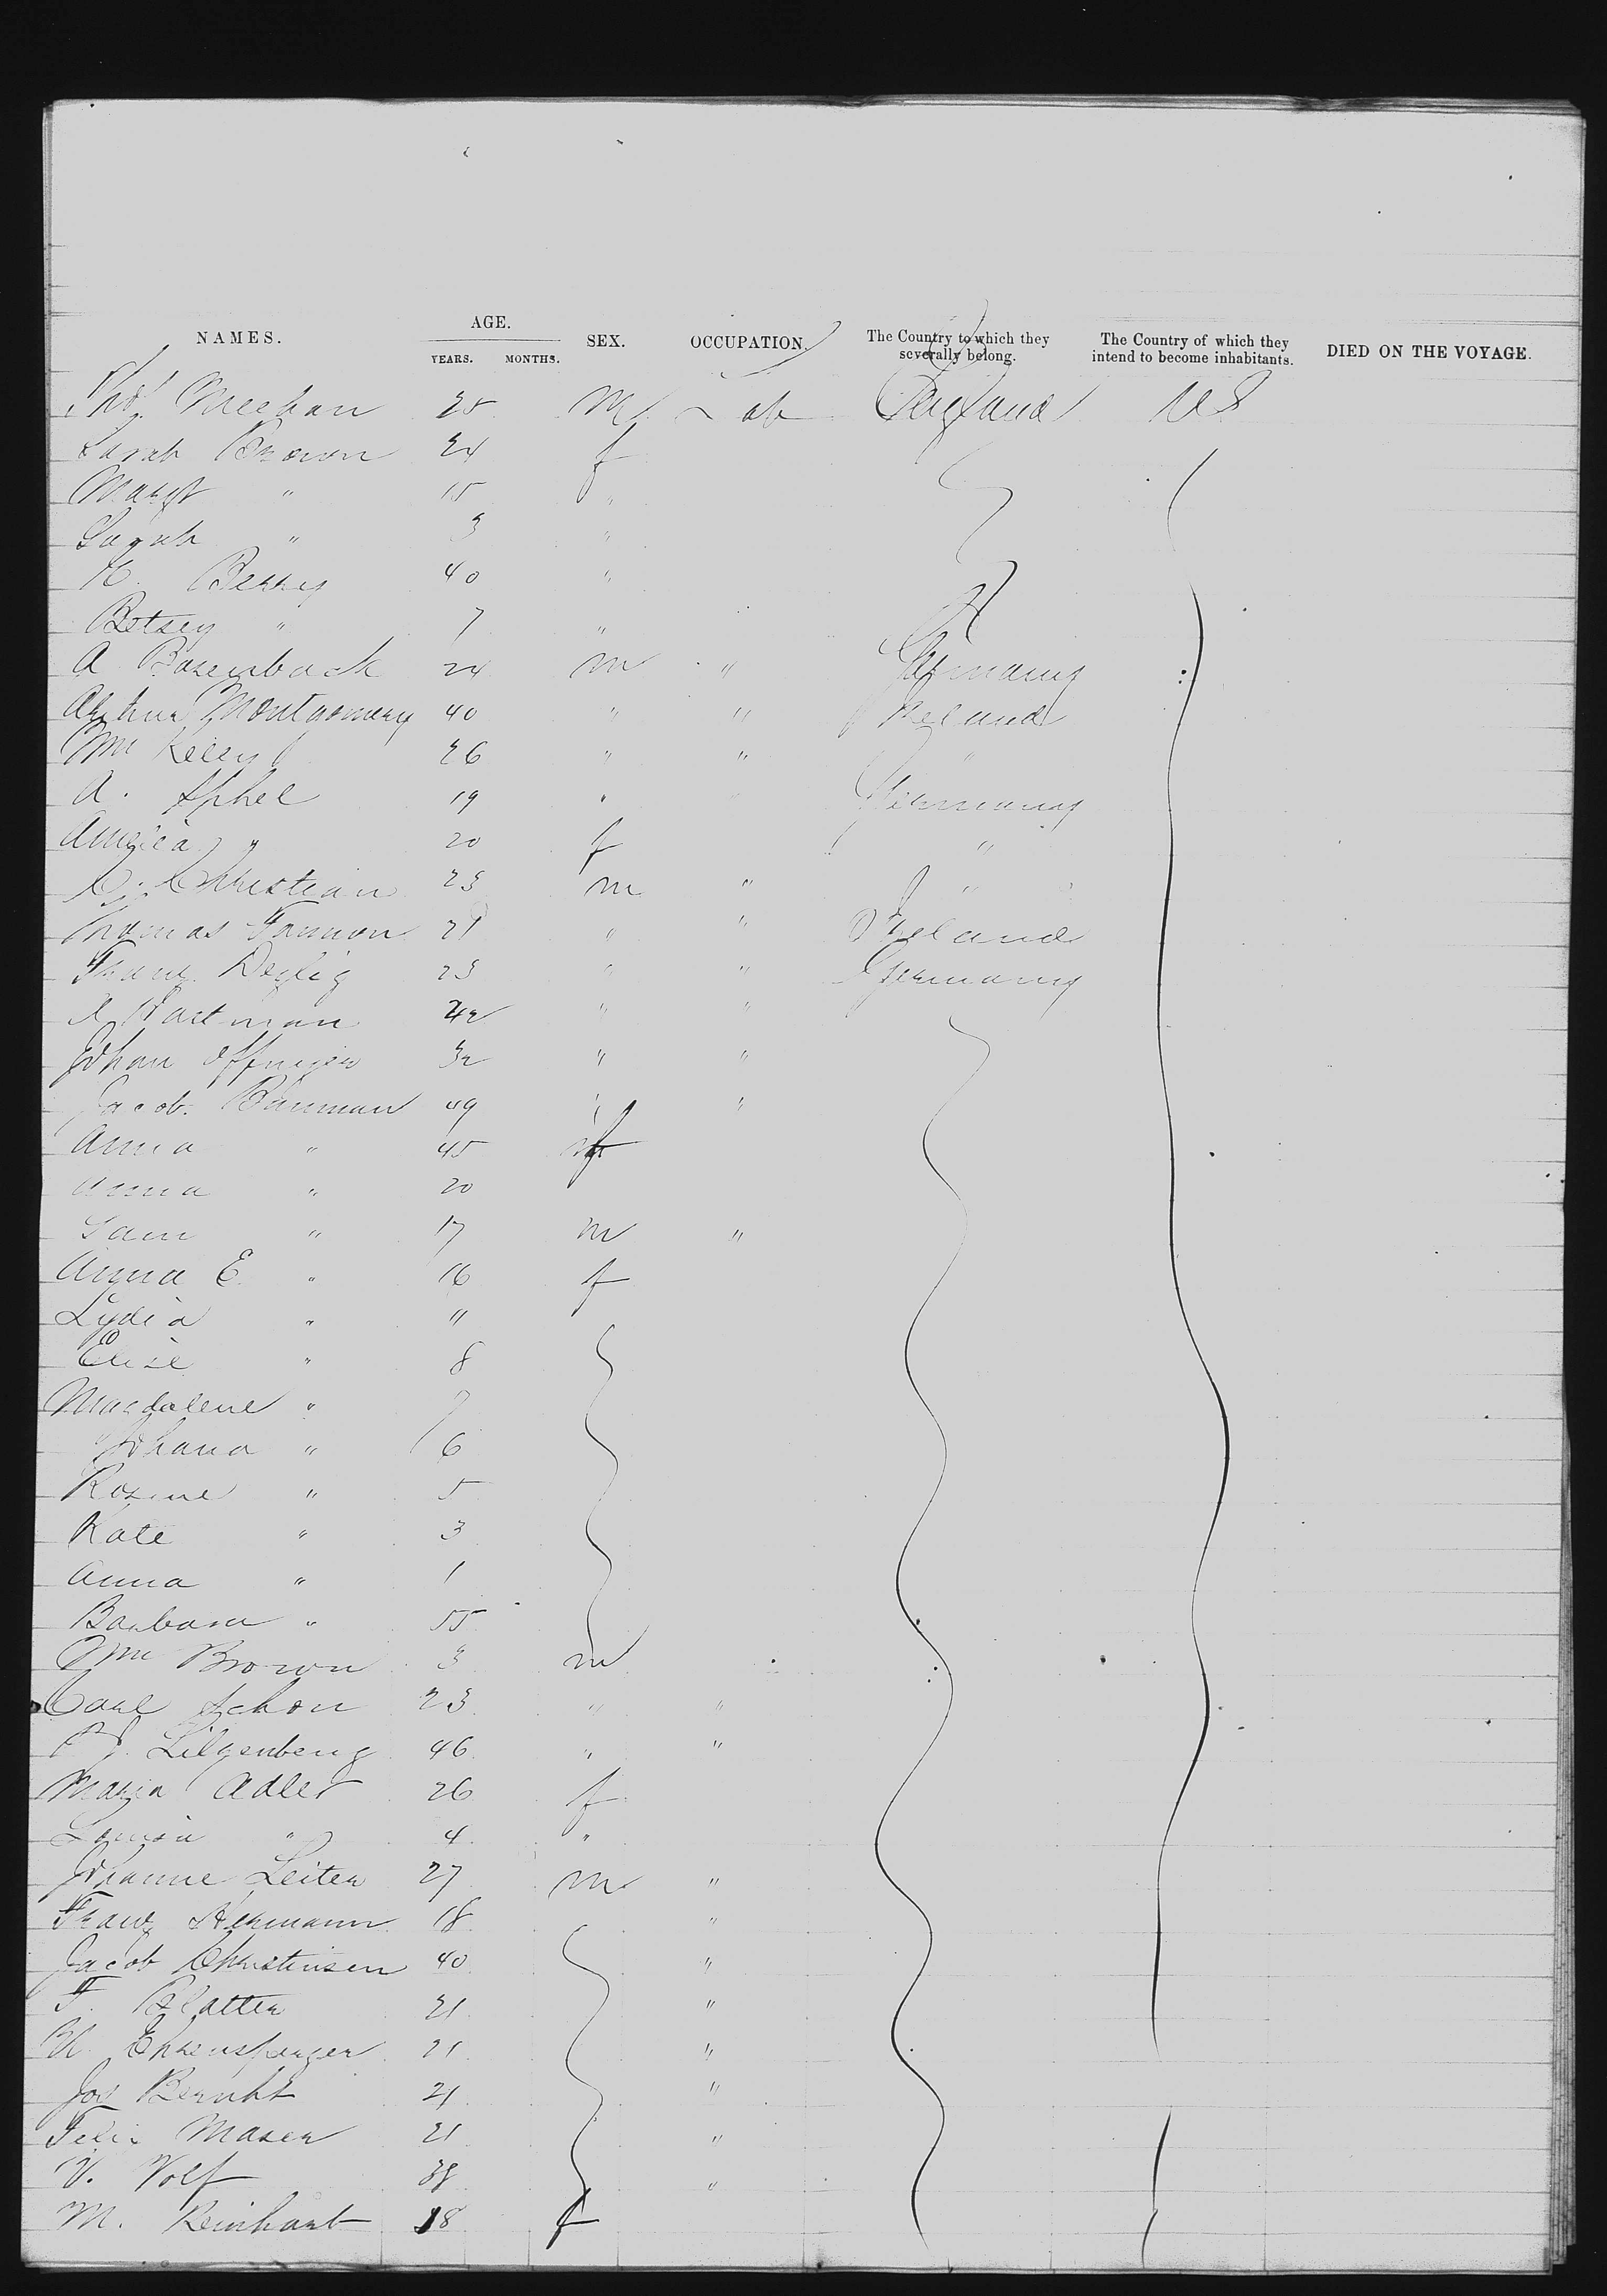 NAMES. AGE. SEX. OCCUPATION. The Country to which they severally belong. The Country of which they intend to become inhabitants. DIED ON THE VOYAGE.
YEARS. MONTHS.
Thos. Meehan 25 M Lab England US
Sarah Brown 24 f
Margt " 15 "
Sarah " 3 "
Berry 40 "
Betsey " 7 "
A Rosenback 24 m " Germany
Arthur Montgomery 40 " " Ireland
Wm Kelly 26 " " "
A. Aphel 19 " Germany
Amelia " 20 f "
C. Christian 23 m " "
Thomas Fannon 21 " " Ireland
Franz 23 " " Germany
Hartman 42 " "
Johan 32 " "
Jacob Bauman 49 " "
Anna " 45 f
Anna " 20
Sam " 17 m "
Anna E. " 16 f
Lydia " 11
Elise " 8
Magdalene " 7
Johana " 6
Rosine " 5
Kate " 3
Anna " 1
Barbara " 55
Wm Brown 3 m
Carl Schon 23 " "
Lilgenberg 46 " "
Maria Adler 26 f
Louisa " 4 "
Johanne Leiter 27 m "
Franz Hermann 18 "
Jacob Christensen 40 "
F. Blatter 21 "
Ehrensperger 21 "
Jos 21 "
Felix Maser 21 "
V. Volf 38 "
M. Reinhart 18 f